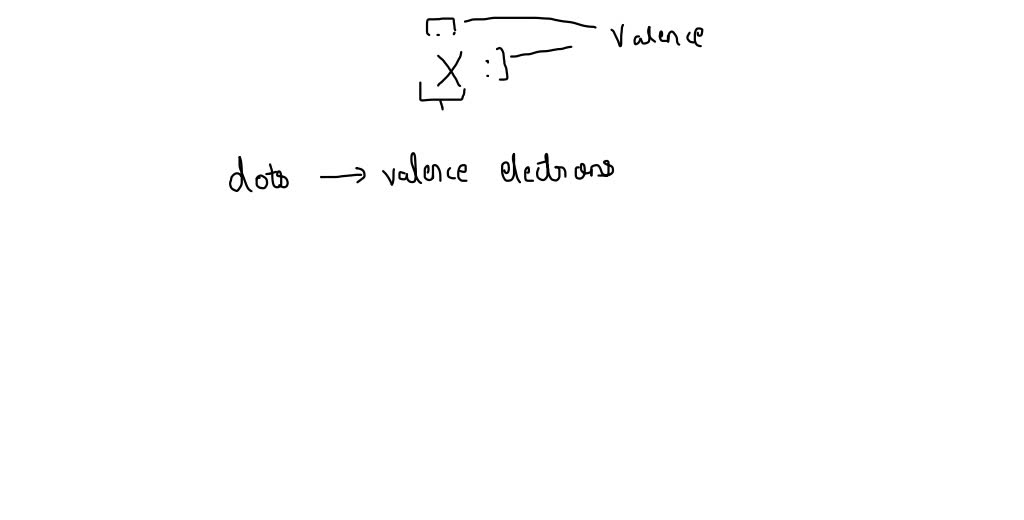 Valence
X :
dots → valence electrons